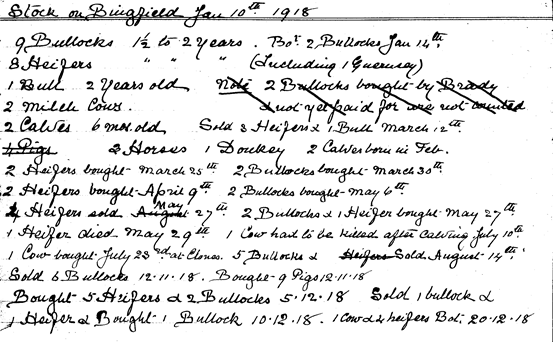 Stock on Bingfield Jan 10th 1918
9 Bullocks 1½ to 2 years . Bot 2 Bullocks Jan 14th.
8 Heifers " " " (Including 1 Guernsey)
1 Bull 2 Years old Note 2 Bullocks bought by Brady
2 Milch Cows. & not yet paid for are not counted
2 Calves 6 mos. old Sold 3 Heifers & 1 Bull March 12th.
4 Pigs 3 Horses 1 Donkey 2 Calves born in Feb.
2 Heifers bought March 25th 2 Bullocks bought March 30th.
2 Heifers bought April 9th 2 Bullocks bought May 6th.
4 Heifers sold August May 27th 2 Bullocks & 1 Heifer bought May 27th
1 Heifer died May 29th 1 Cow had to be killed after Calving July 10th
1 Cow bought July 23rd at Clones. 5 Bullocks & Heifers Sold August 14th.
Sold 6 Bullocks 12.11.18. Bought 9 Pigs 12.11.18
Bought 5 Heifers & 2 Bullocks 5.12.18 Sold 1 bullock &
1 Heifer & Bought 1 Bullock 10.12.18. 1 Cow & 4 heifers Bot. 20.12.18